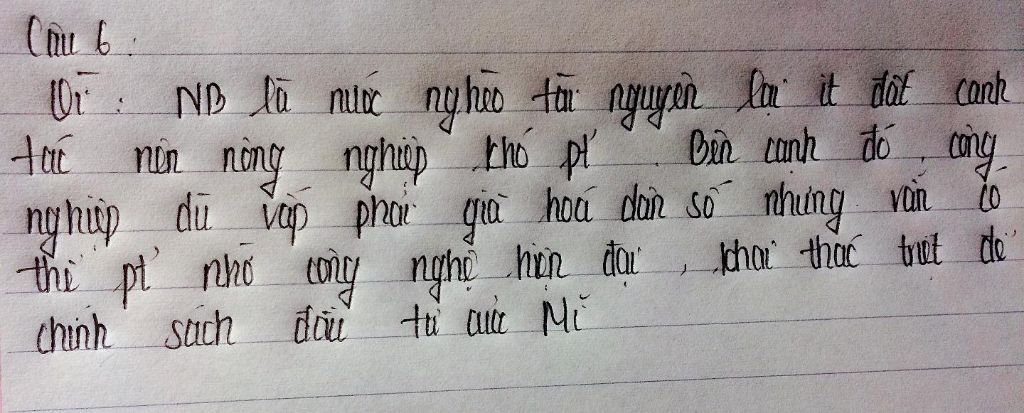 Câu 6:
Vì: NB là nước nghèo tài nguyên lại ít đất canh
tác nên nông nghiệp khó pt. Bên cạnh đó, công
nghiệp dù vấp phải già hoá dân số nhưng vẫn có
thể pt nhờ công nghệ hiện đại, khai thác triệt để
chính sách đầu tư của Mĩ